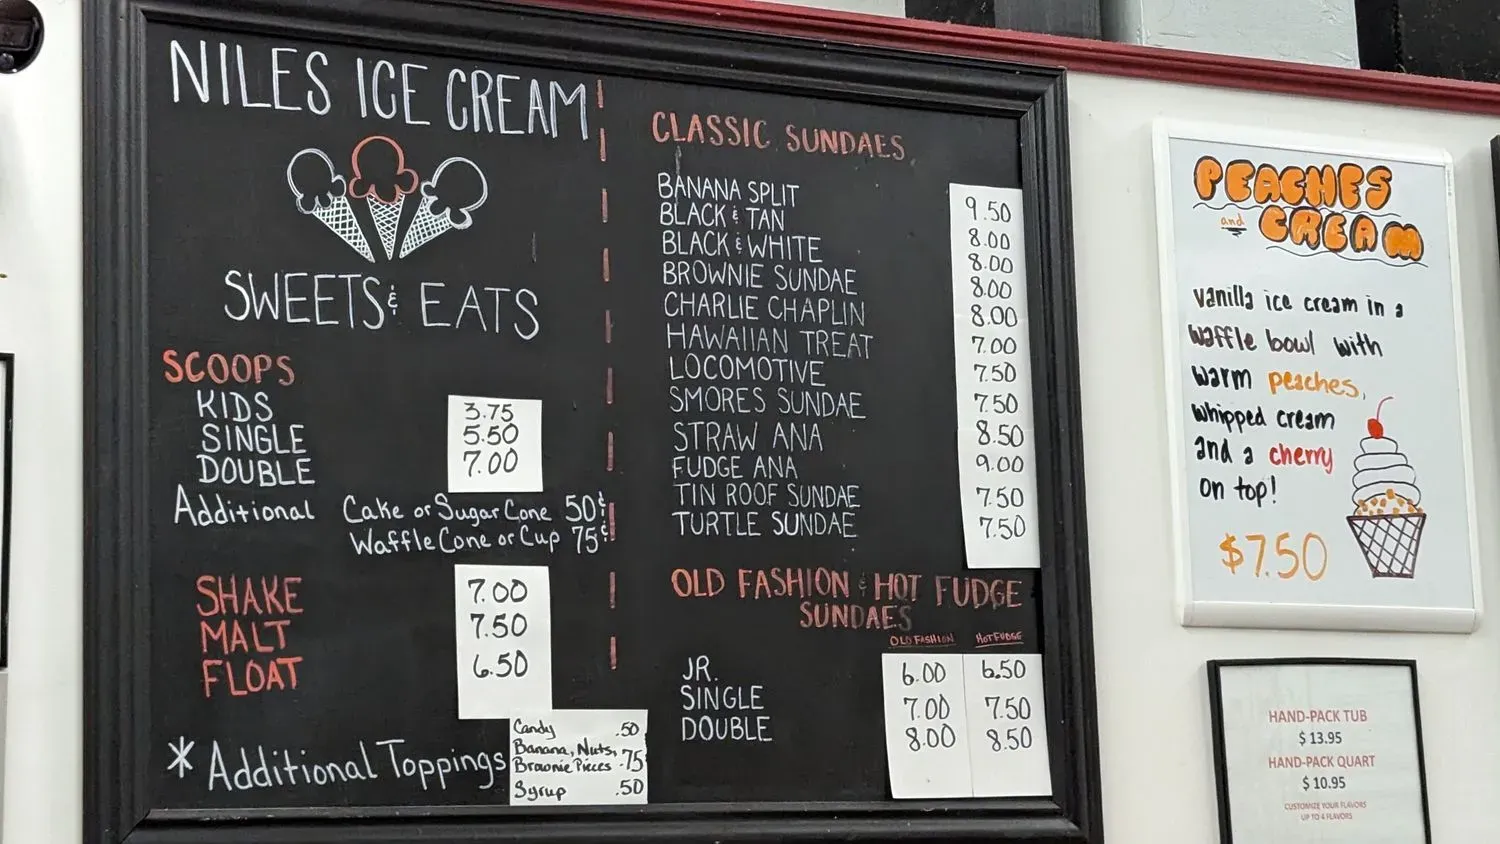 NILES ICE CREAM
SWEETS & EATS
SCOOPS
KIDS 3.75
SINGLE 5.50
DOUBLE 7.00
Additional Cake or Sugar Cone 50¢
Waffle Cone or Cup 75¢
SHAKE 7.00
MALT 7.50
FLOAT 6.50
* Additional Toppings
Candy .50
Banana, Nuts,
Brownie Pieces .75
Syrup .50
CLASSIC SUNDAES
BANANA SPLIT 9.50
BLACK & TAN 8.00
BLACK & WHITE 8.00
BROWNIE SUNDAE 8.00
CHARLIE CHAPLIN 8.00
HAWAIIAN TREAT 7.00
LOCOMOTIVE 7.50
SMORES SUNDAE 7.50
STRAW ANA 8.50
FUDGE ANA 9.00
TIN ROOF SUNDAE 7.50
TURTLE SUNDAE 7.50
OLD FASHION & HOT FUDGE
SUNDAES
OLD FASHION HOT FUDGE
JR. 6.00 6.50
SINGLE 7.00 7.50
DOUBLE 8.00 8.50
PEACHES
and CREAM
vanilla ice cream in a
waffle bowl with
warm peaches,
whipped cream
and a cherry
on top!
$7.50
HAND-PACK TUB
$ 13.95
HAND-PACK QUART
$ 10.95
CUSTOMIZE YOUR FLAVORS
UP TO 4 FLAVORS